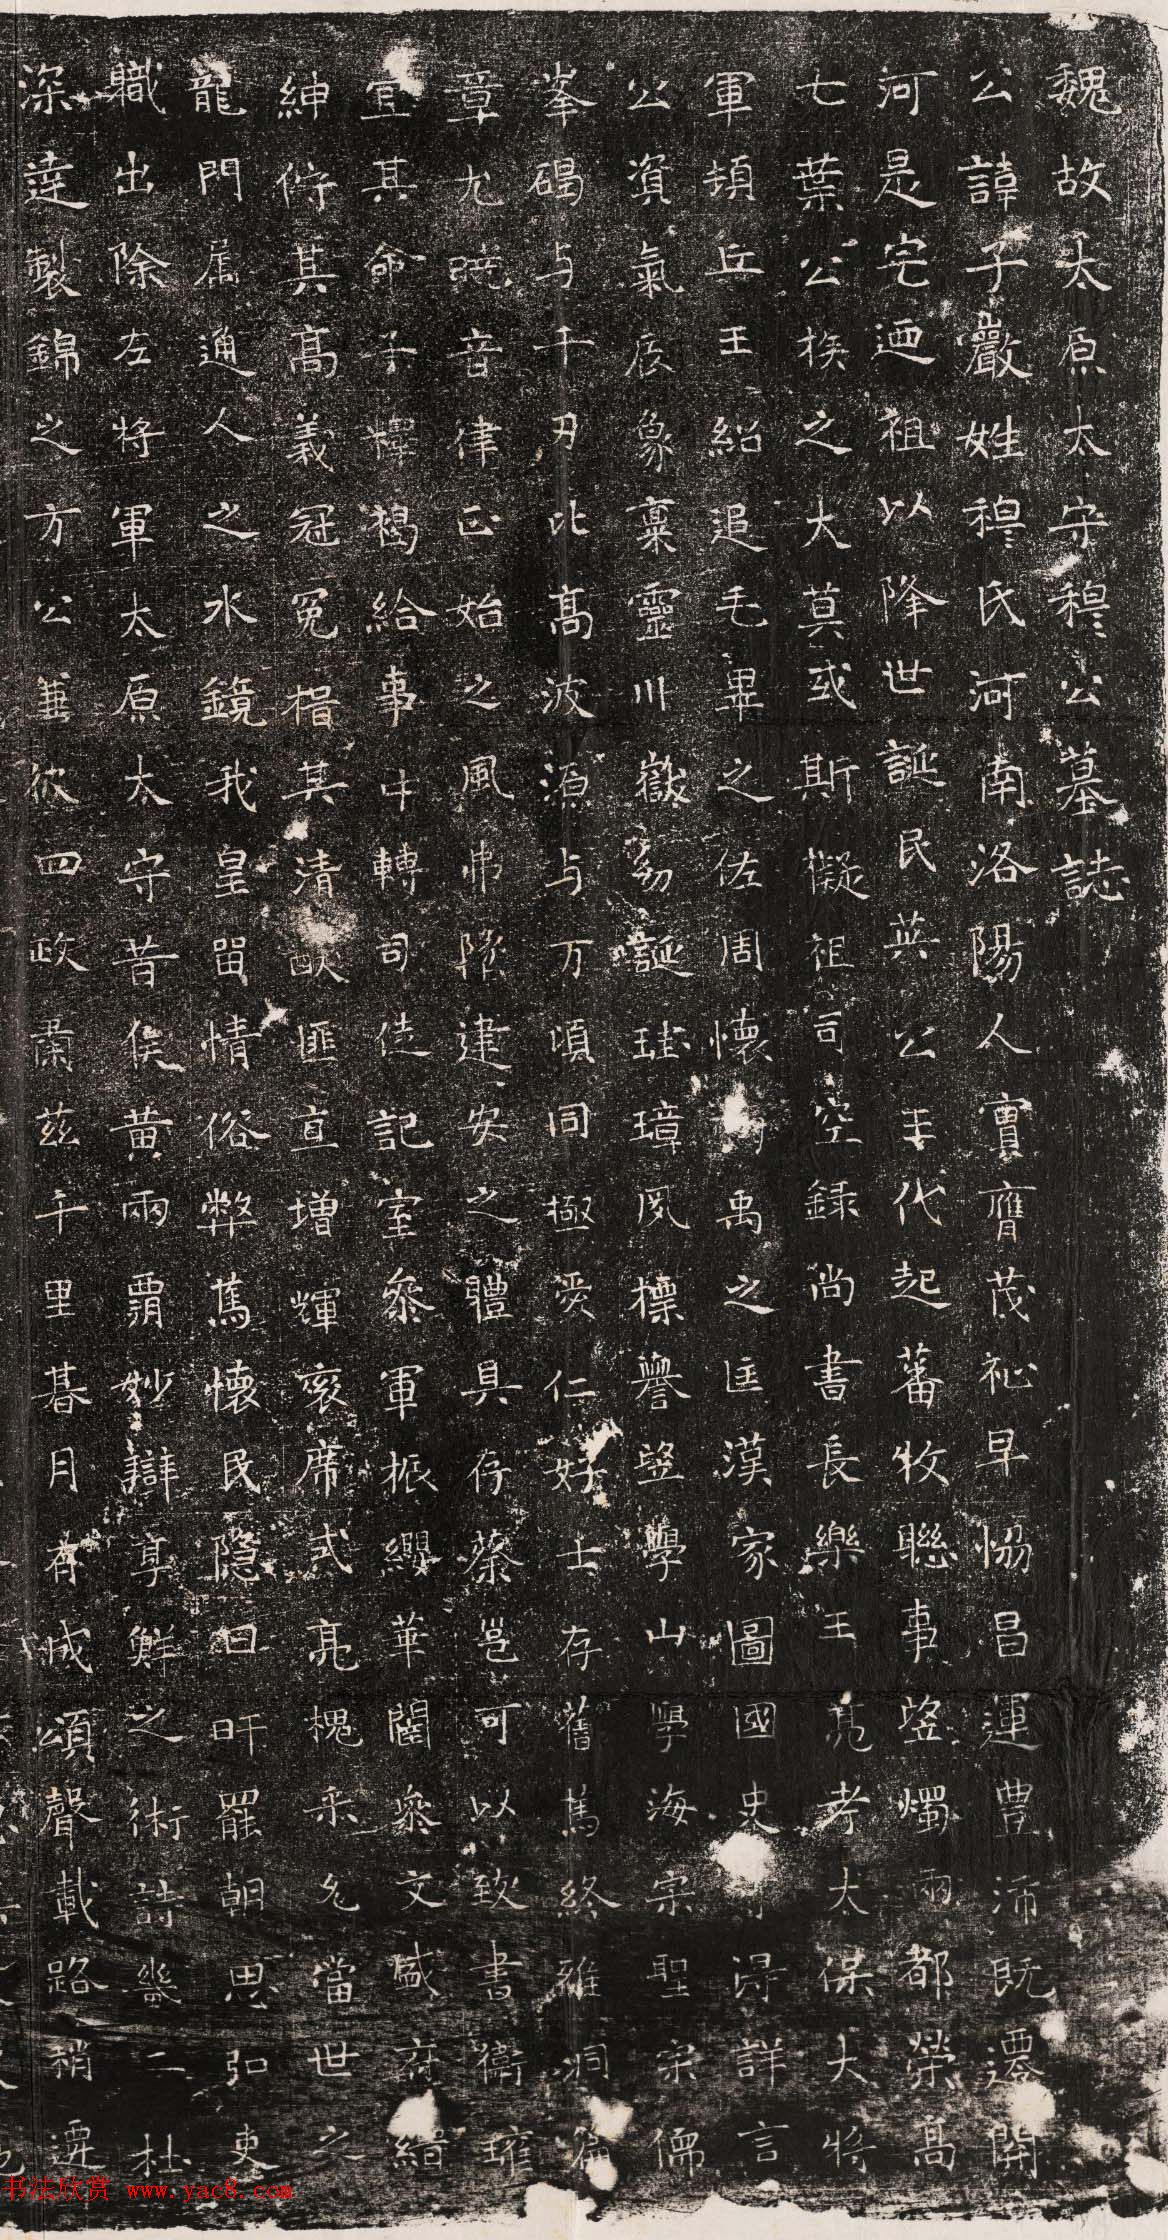 魏故太原太守穆公墓誌
公諱子巖姓穆氏河南洛陽人實膺茂祉早協昌運豊沛既遷關
河是宅迺祖以降世誕民英公王代起蕃牧聯事望燭兩都榮高
七葉公族之大莫或斯擬祖司空錄尚書長樂王亮考太保大將
軍頓丘王紹追毛畢之佐周懷禹之匡漢家圖國史可得詳言
公資氣辰象稟靈川嶽幼誕珪璋夙標譽望學山學海宗聖宗儒
峯碣与千刃比高波源与万頃同極愛仁好士存舊篤終雅洞篇
章尤曉音律正始之風弗隊建安之體具存蔡邕可以致書衛瓘
宜其命子釋褐給事中轉司徒記室參軍振纓華閣參文盛府縉
紳佇其高義冠冕揖其清猷匪直增輝袞席式亮槐采允當世之
龍門爲通人之水鏡我皇留情俗弊篤懷民隱日旰罷朝思弘吏
職出除左將軍太原太守昔侯黃兩霸妙辯享鮮之術詩幾二杜
深達製錦之方公兼彼四政肅茲千里朞月有成頌聲載路稍遷
书法欣赏 www.yac8.com